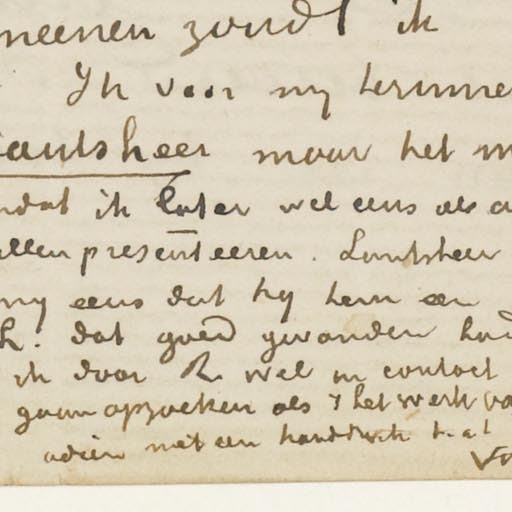 meenen zondt ik
Ik voor my herinner
Lantsheer maar het m
omdat ik later wel eens als a
willen presenteeren. Lantsheer
my eens dat hy hem een
h. dat goed gevonden had
ik door R. wel in contact
gaan opzoeken als 't het werk va
adieu met een handdruk t. a t.